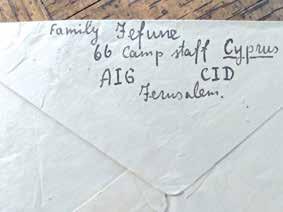 Family Jefune
66 Camp staff Cyprus
AIG CID
Jerusalem.